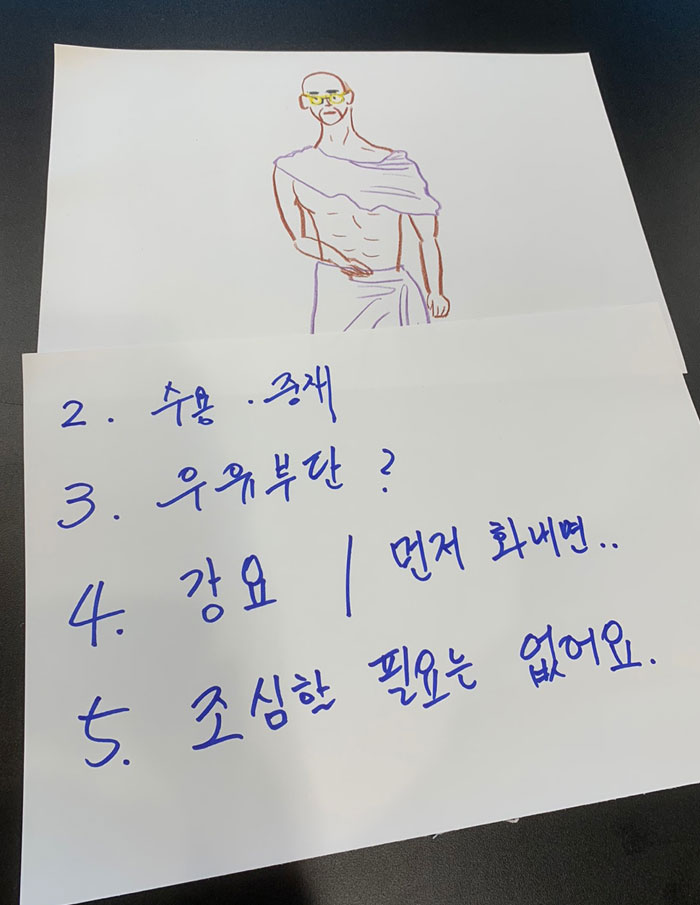 2. 수용 · 중재
3. 우유부단?
4. 강요 / 먼저 화내면..
5. 조심할 필요는 없어요.